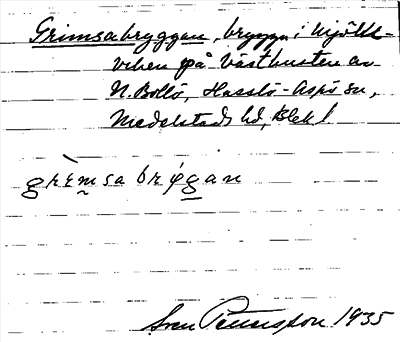 Grimsabryggan, brygga i Mjölk-
viken på västkusten av
N. Bollö, Hasslö-Aspö sn,
Medelstads hd, Blek l.
grìmsabrýgan
Sven Benson 1935